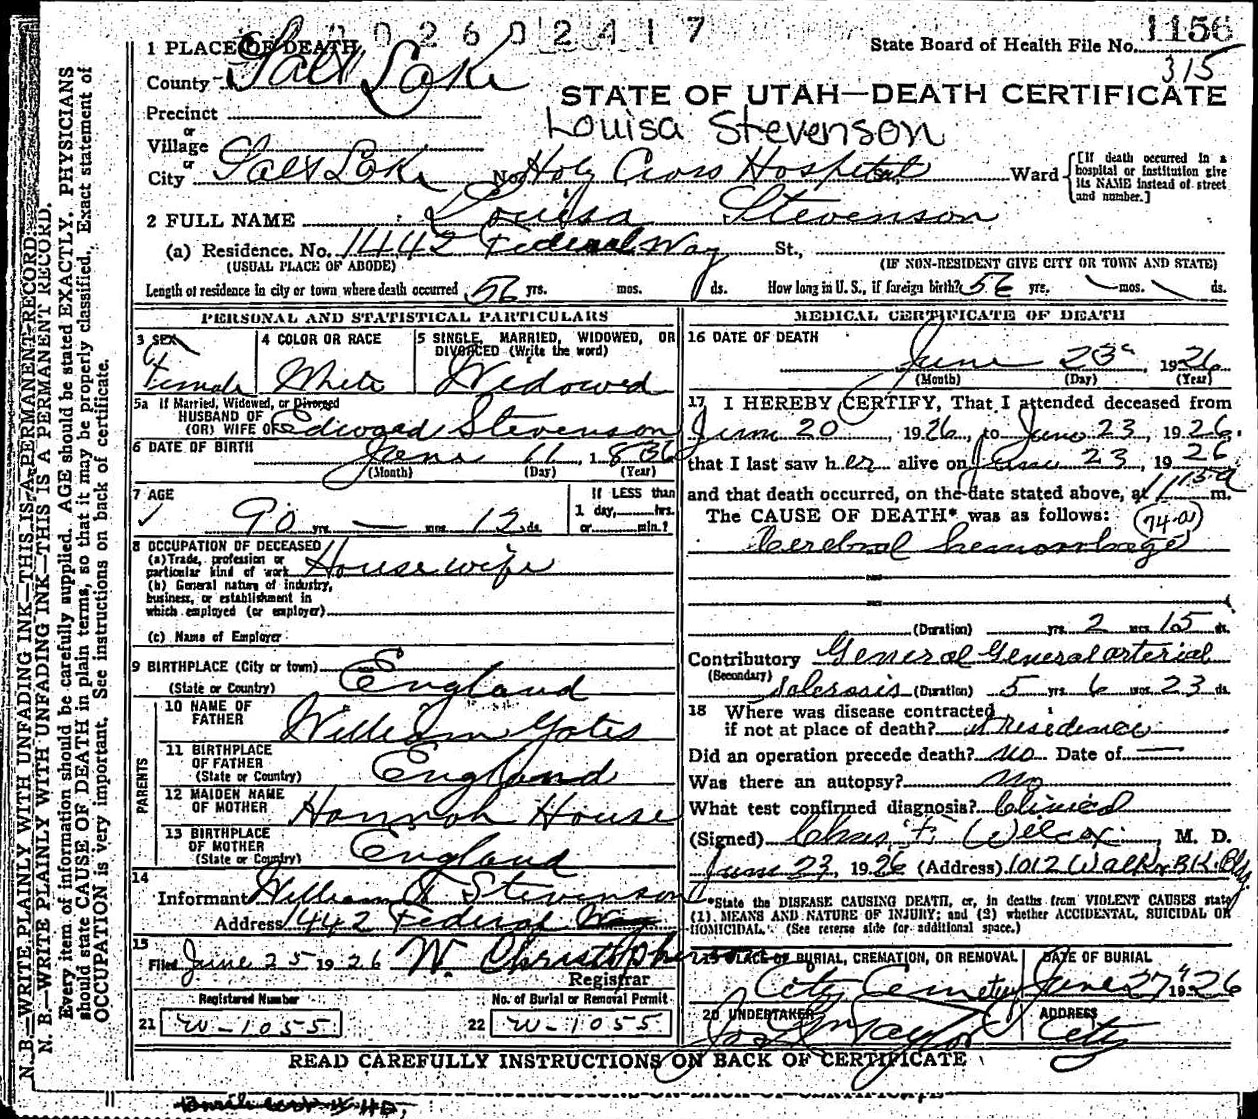 0 0 2 6 0 2 4 1 7
1156
1 PLACE OF DEATH
State Board of Health File No.
315
County Salt Lake
STATE OF UTAH—DEATH CERTIFICATE
Precinct
Louisa Stevenson
or
Village
or
City Salt Lake No. Holy Cross Hospital Ward
[If death occurred in a hospital or institution give its NAME instead of street and number.]
2 FULL NAME Louisa Stevenson
(a) Residence. No. 1442 Federal Way St.,
(USUAL PLACE OF ABODE) (IF NON-RESIDENT GIVE CITY OR TOWN AND STATE)
Length of residence in city or town where death occurred 56 yrs. mos. ds. How long in U. S., if foreign birth? 56 yrs. mos. ds.
PERSONAL AND STATISTICAL PARTICULARS
3 SEX Female
4 COLOR OR RACE White
5 SINGLE, MARRIED, WIDOWED, OR DIVORCED (Write the word) Widowed
5a If Married, Widowed, or Divorced
HUSBAND OF
(OR) WIFE OF Edward Stevenson
6 DATE OF BIRTH June 11, 1836
(Month) (Day) (Year)
7 AGE 90 yrs. — mos. 12 ds.
If LESS than
1 day, hrs.
or min.?
8 OCCUPATION OF DECEASED
(a) Trade, profession or
particular kind of work Housewife
(b) General nature of industry,
business, or establishment in
which employed (or employer)
(c) Name of Employer
9 BIRTHPLACE (City or town) England
(State or Country)
PARENTS
10 NAME OF FATHER William Yates
11 BIRTHPLACE OF FATHER England
(State or Country)
12 MAIDEN NAME OF MOTHER Hannah House
13 BIRTHPLACE OF MOTHER England
(State or Country)
14
Informant William Stevenson
Address 1442 Federal Way
15
Filed June 25 1926 W. Christopherson
Registrar
Registered Number No. of Burial or Removal Permit
21 W-1055 22 W-1055
MEDICAL CERTIFICATE OF DEATH
16 DATE OF DEATH
June 23, 1926
(Month) (Day) (Year)
17 I HEREBY CERTIFY, That I attended deceased from
June 20, 1926, to June 23, 1926.
that I last saw her alive on June 23, 1926
and that death occurred, on the date stated above, at m.
The CAUSE OF DEATH* was as follows: 74-a
Cerebral hemorrhage
(Duration) yrs. 2 mos. 15 ds.
Contributory General General arterial
(Secondary) Sclerosis (Duration) 5 yrs. 6 mos. 23 ds.
18 Where was disease contracted
if not at place of death? at residence
Did an operation precede death? no Date of —
Was there an autopsy? no
What test confirmed diagnosis? Clinical
(Signed) Chas. F. Wilcox, M. D.
June 23, 1926 (Address) 1012 Walker BK. Bldg
*State the DISEASE CAUSING DEATH, or, in deaths from VIOLENT CAUSES state
(1) MEANS AND NATURE OF INJURY; and (2) whether ACCIDENTAL, SUICIDAL OR
HOMICIDAL. (See reverse side for additional space.)
19 PLACE OF BURIAL, CREMATION, OR REMOVAL City Cemetery
DATE OF BURIAL June 27 1926
20 UNDERTAKER Taylor
ADDRESS City
READ CAREFULLY INSTRUCTIONS ON BACK OF CERTIFICATE
N. B.—WRITE PLAINLY WITH UNFADING INK—THIS IS A PERMANENT RECORD
N. B.—WRITE PLAINLY WITH UNFADING INK—THIS IS A PERMANENT RECORD.
Every item of information should be carefully supplied. AGE should be stated EXACTLY. PHYSICIANS
should state CAUSE OF DEATH in plain terms, so that it may be properly classified. Exact statement of
OCCUPATION is very important. See instructions on back of certificate.